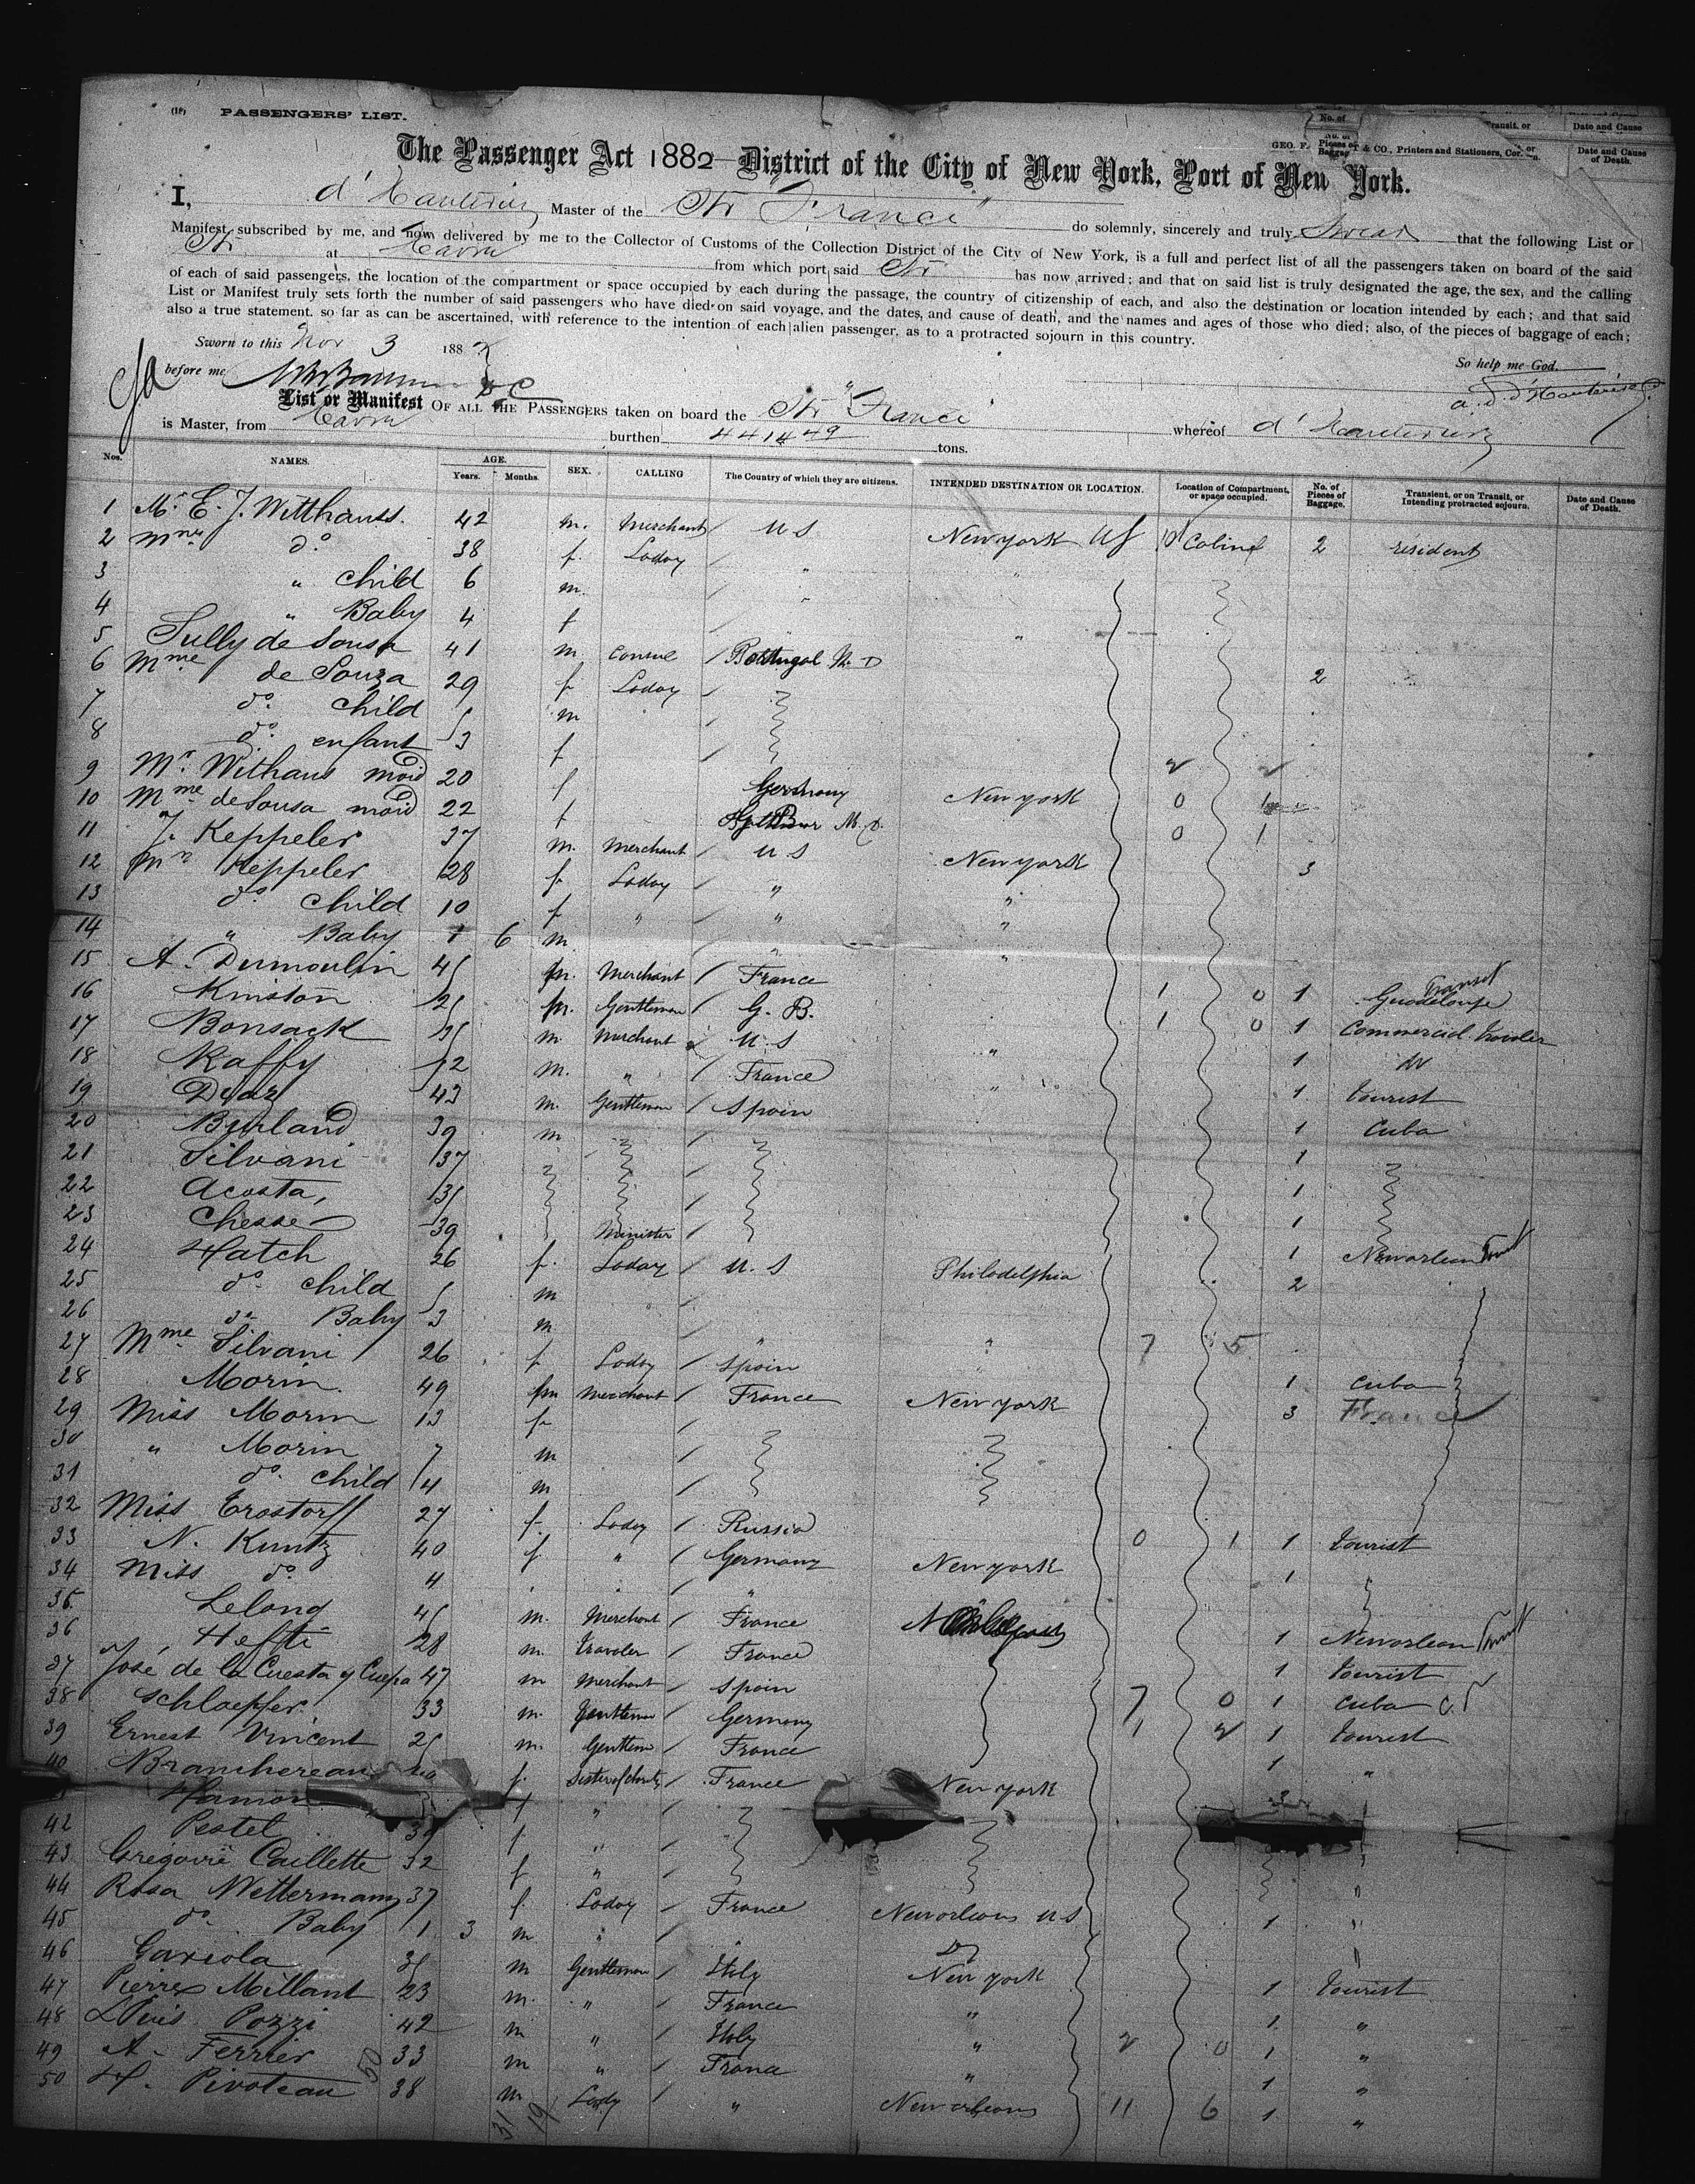 (1P) PASSENGERS' LIST.
No. of Transit, or Date and Cause
GEO. F. & CO., Printers and Stationers, Cor.
No. of Pieces of Baggage Date and Cause of Death.
The Passenger Act 1882 District of the City of New York, Port of New York.
I, Master of the Str "France" do solemnly, sincerely and truly Swear that the following List or
Manifest, subscribed by me, and now delivered by me to the Collector of Customs of the Collection District of the City of New York, is a full and perfect list of all the passengers taken on board of the said
Str at Havre from which port said Str has now arrived; and that on said list is truly designated the age, the sex, and the calling
of each of said passengers, the location of the compartment or space occupied by each during the passage, the country of citizenship of each, and also the destination or location intended by each; and that said
List or Manifest truly sets forth the number of said passengers who have died on said voyage, and the dates, and cause of death, and the names and ages of those who died; also, of the pieces of baggage of each;
also a true statement, so far as can be ascertained, with reference to the intention of each alien passenger, as to a protracted sojourn in this country.
Sworn to this Nov 3 188
So help me God.
before me
List or Manifest OF ALL THE PASSENGERS taken on board the Str "France" whereof
is Master, from Havre burthen tons.
Nos. NAMES. AGE. Years. Months. SEX. CALLING The Country of which they are citizens. INTENDED DESTINATION OR LOCATION. Location of Compartment, or space occupied. No. of Pieces of Baggage. Transient, or on Transit, or Intending protracted sojourn. Date and Cause of Death.
1 Mr. E. J. Witthauss. 42 m. Merchant U S New york US Cabin 2 resident
2 Mme do. 38 f. Laday "
3 " Child 6 m. "
4 " Baby 4 f "
5 Sully de Sousa 41 m consul Portugal
6 Mme de Souza 29 f Laday 2
7 do. Child m
8 do. enfant 3 f
9 Mr. Withaus maid 20 f Germany New york
10 Mme de Sousa maid 22 f
11 J. Keppeler 37 m. Merchant U S New york 3
12 Keppeler 28 f. Laday " "
13 do. Child 10 f " " "
14 " Baby 1 6 m. " "
15 A. Dumoulin 45 m. Merchant France 1 0 1 Guadeloupe Transit
16 Kniston m. Gentleman G. B. 1 0 1 Commercial traveler
17 Bonsack m. Merchant U. S " 1
18 Raffy m. " France " 1 tourist
19 43 m. Gentleman Spain 1 Cuba
20 Burland 39 m 1
21 Silvani 37 1
22 Acosta, 35 1
23 Chesse 39 Minister 1 New orlean
24 Hatch 26 f. Laday U. S Philadelphia 2
25 do. child m
26 do Baby 3 m. " " 7 5
27 Mme Silvani 26 f Laday Spain 1 cuba
28 Morin. 49 m merchant France New york 3 France
29 Miss Morin 13 f
30 " Morin 7 m
31 do. child 4 m
32 Miss Erostorff 27 f. Laday Russia 0 1 1 tourist
33 N. Kuntz 40 f " Germany New york 1
34 Miss do. 4 "
35. Lelong 45 m. Merchant France 1 New orlean
36 Hefti 28 m. traveler France 1 tourist
37 José de la Cuesta y 47 m merchant Spain 7 0 1 Cuba
38 Schlaepfer. 33 m. Gentleman Germany 1 1 tourist
39 Ernest Vincent 25 m. Gentlem France 1 "
40 Branchereau f. Sister of charity France New york
Hamon f "
42 Pestel f "
43 Gregoire Caillette 32 f "
44 Rosa Wettermann 37 f. Laday France New orleans U S 1 "
45 do. Baby 1 3 m " " "
46 Gariola 35 m Gentleman Italy New york 1 tourist
47 Pierre Millant 23 m. " France " 1 "
48 Louis Pozzi 42 m " Italy " 0 1 "
49 A. Ferrier 33 m " France " 1 "
50 H. Pivoteau 38 m Lady " New orleans 11 6 1 "
50
31 19